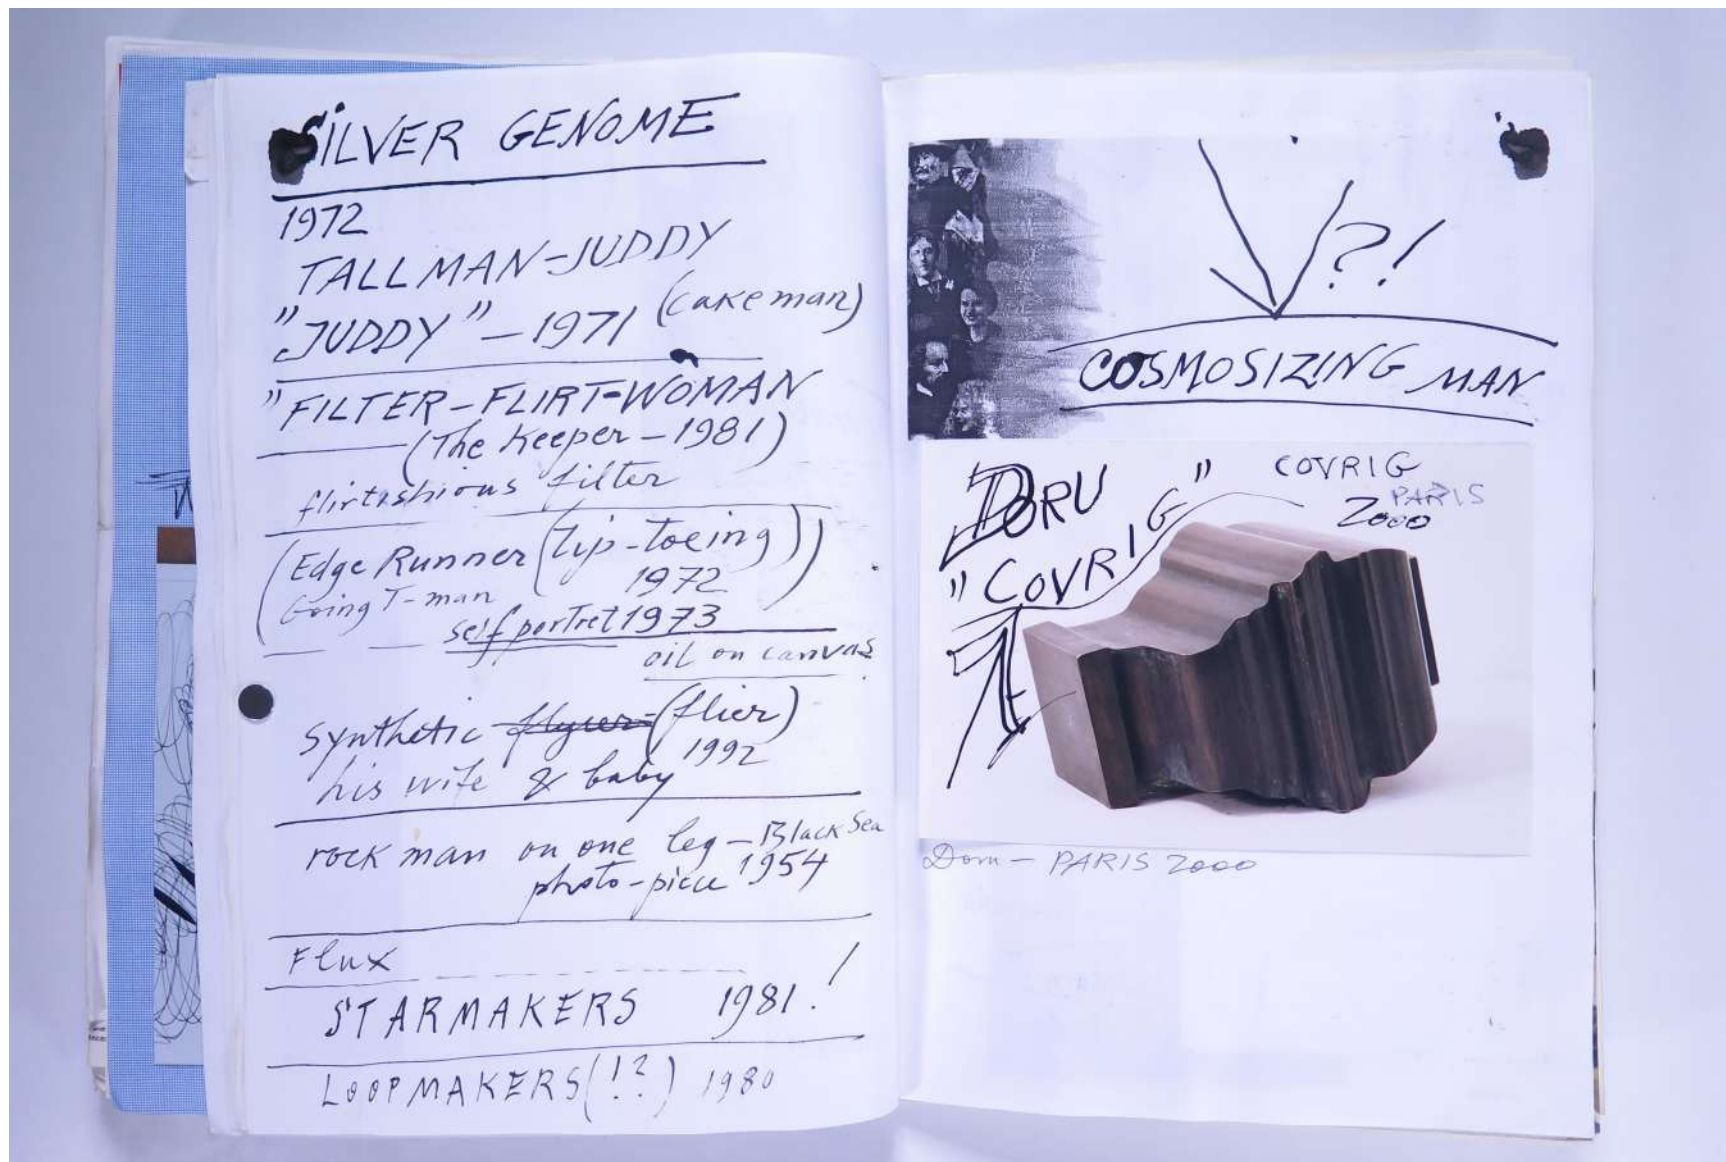 SILVER GENOME
1972
TALLMAN-JUDDY
"JUDDY" - 1971 (cakeman)
"FILTER-FLIRT-WOMAN
(The Keeper - 1981)
flirtishious filter
(Edge Runner (tip-toeing))
1972
Going T-man
self portret 1973
oil on canvas
synthetic flyer (flier)
1992
his wife & baby
rock man on one leg - Black Sea
photo-piece 1954
Flux
STARMAKERS 1981.!
LOOPMAKERS (!?) 1980
?!
COSMOSIZING MAN
DORU
"COVRIG"
COVRIG
PARIS
2000
Doru - PARIS 2000